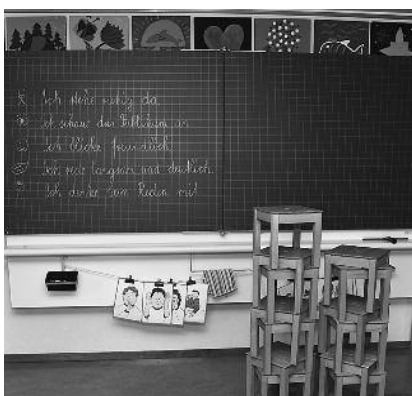 Ich stehe ruhig da
Ich schaue das Publikum an
Ich blicke freundlich
Ich rede langsam und deutlich.
Ich Reden mit